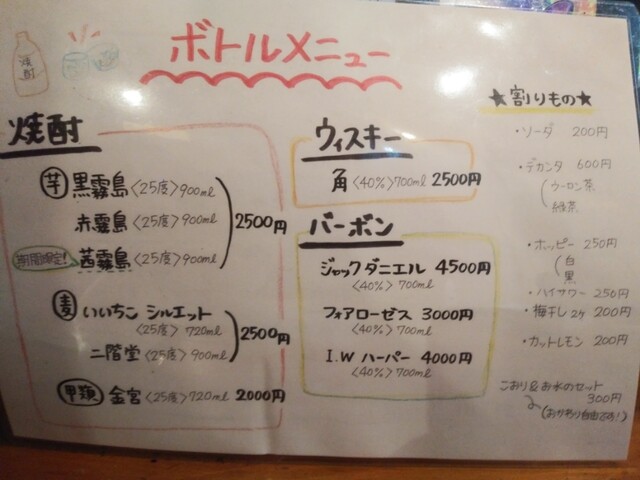 焼酎
ボトルメニュー
焼酎
芋 黒霧島〈25度〉900ml
赤霧島〈25度〉900ml
期間限定! 茜霧島〈25度〉900ml
2500円
麦 いいちこ シルエット
〈25度〉720ml
二階堂〈25度〉900ml
2500円
甲類 金宮〈25度〉720ml 2000円
ウィスキー
角〈40%〉700ml 2500円
バーボン
ジャックダニエル 4500円
〈40%〉700ml
フォアローゼス 3000円
〈40%〉700ml
I.W ハーパー 4000円
〈40%〉700ml
★割りもの★
・ソーダ 200円
・デカンタ 600円
ウーロン茶
緑茶
・ホッピー 250円
白
黒
・ハイサワー 250円
・梅干し2ケ 200円
・カットレモン 200円
こおり&お水のセット
300円
(おかわり自由です!)